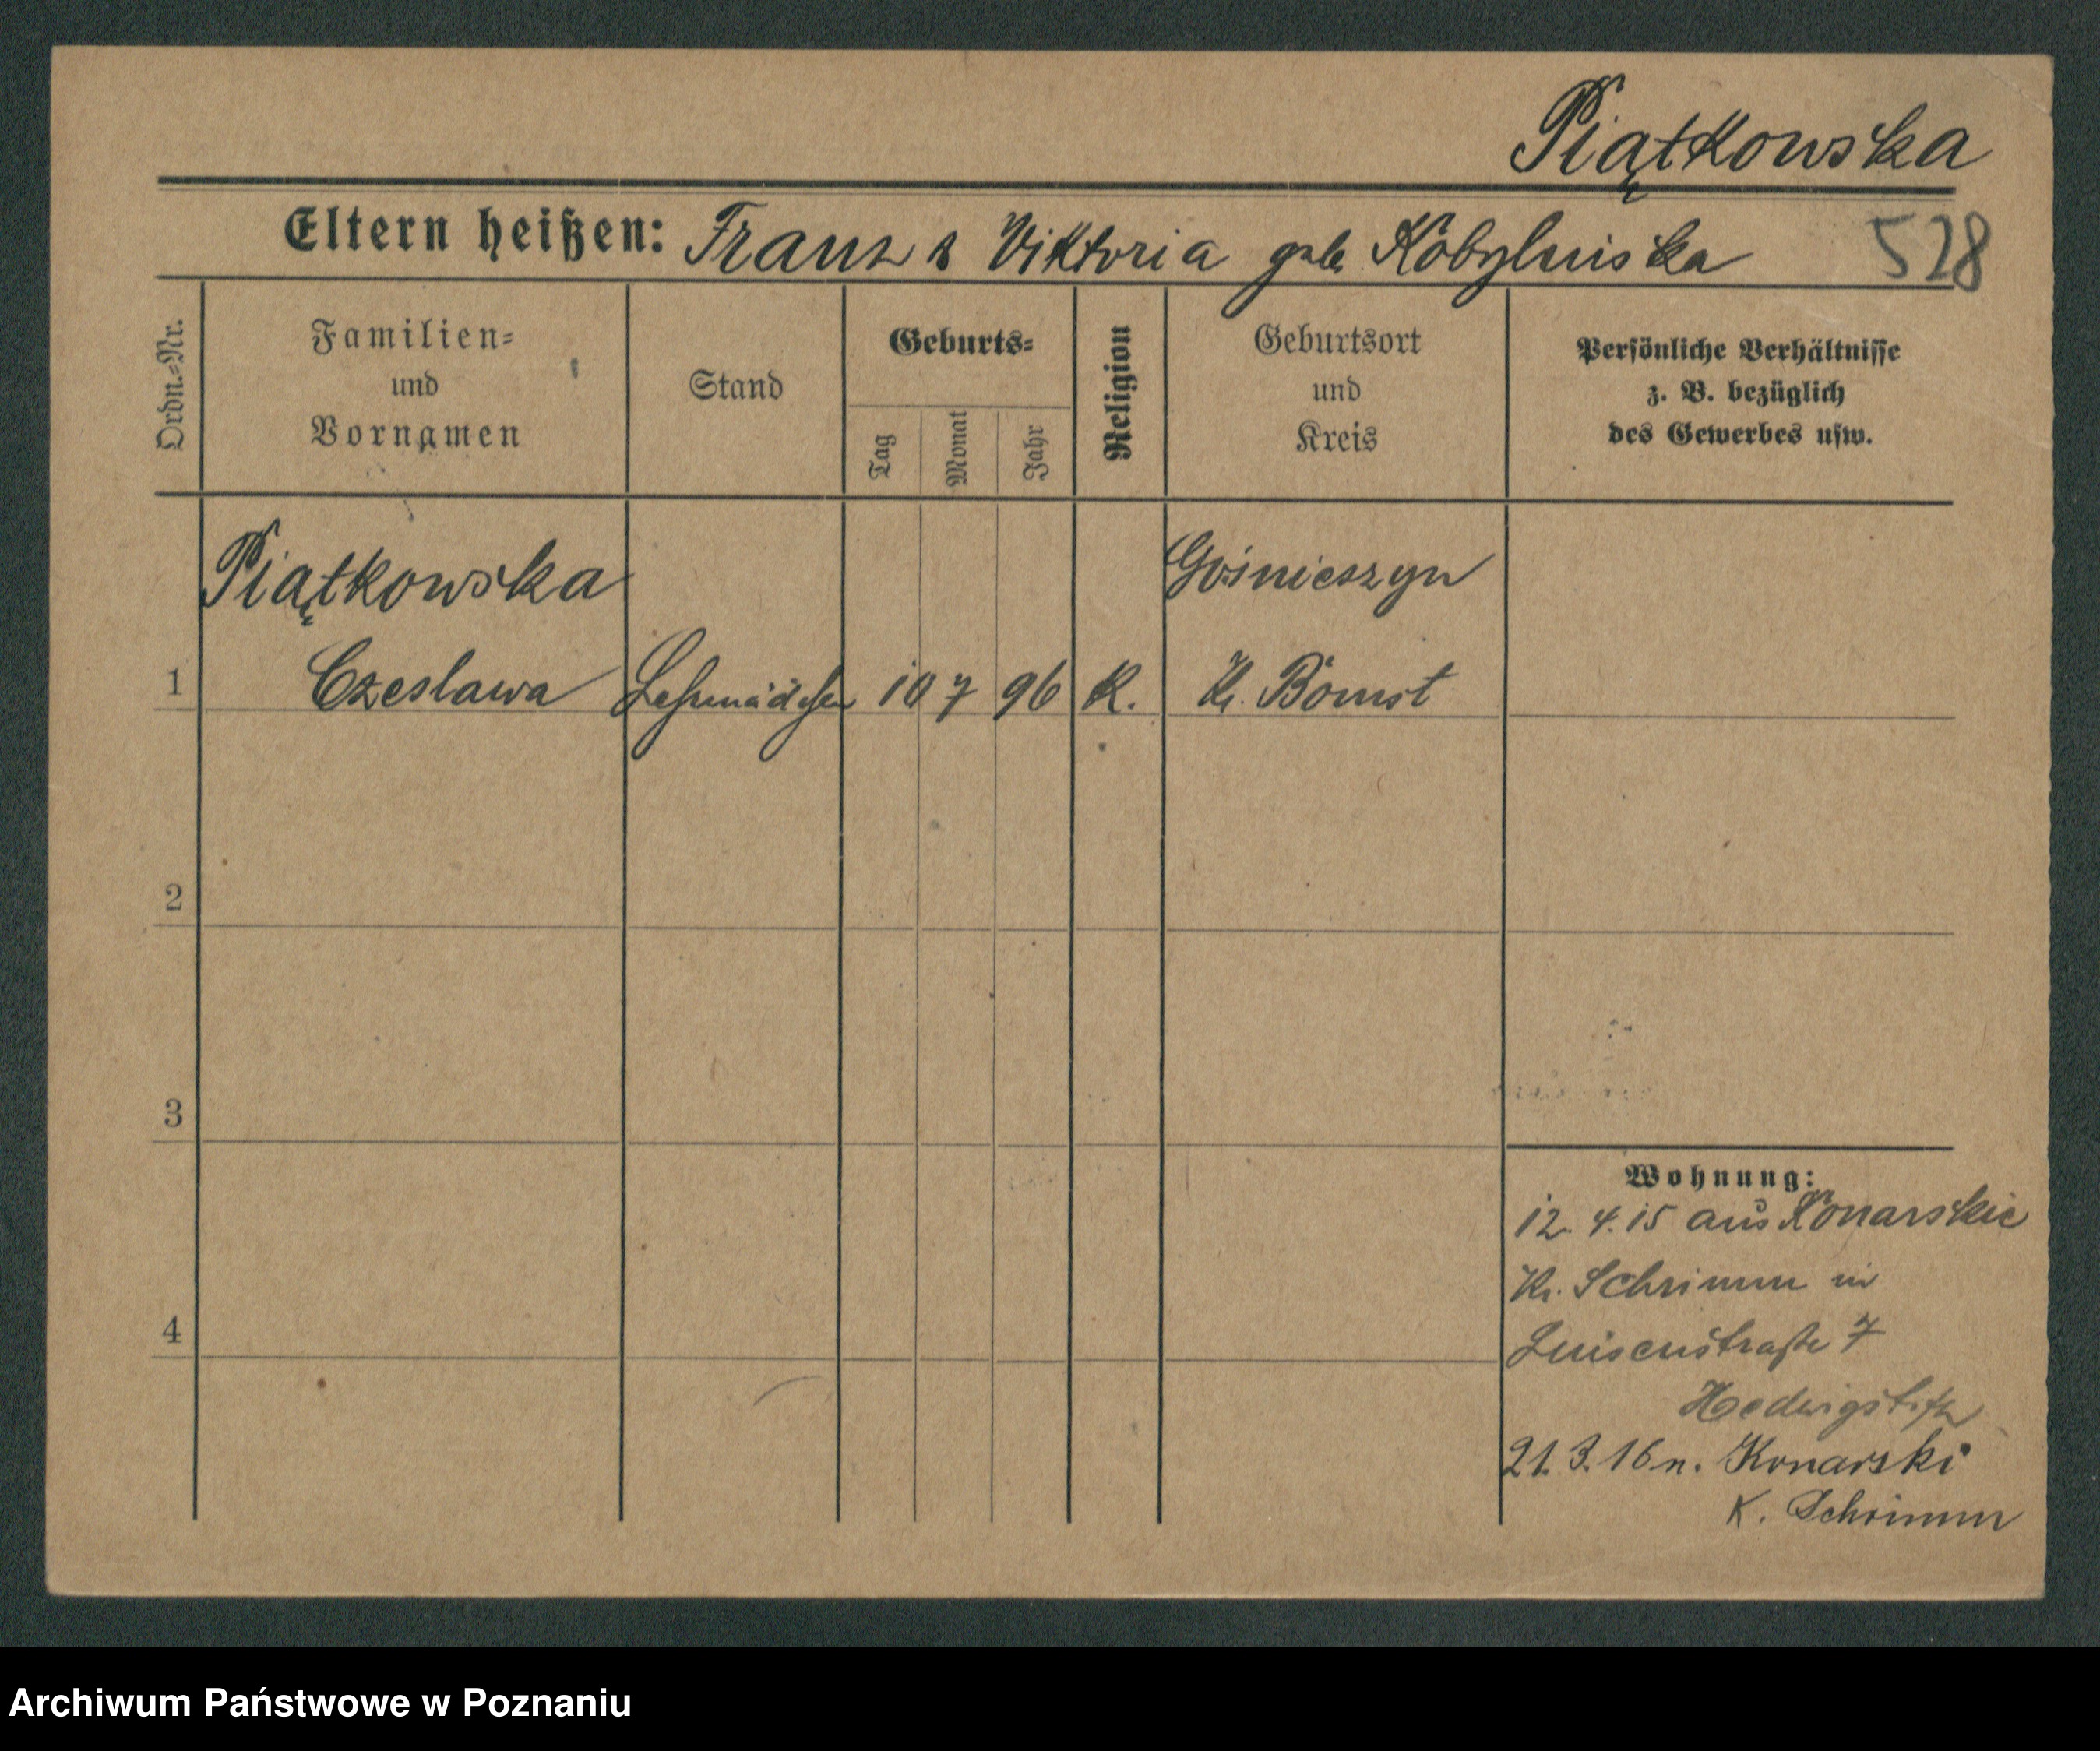 Piątkowska
Eltern heißen: Franz & Viktoria geb. Kobylinska 528
Ordn.-Nr.
Familien-
und
Vornamen
Stand
Geburts-
Tag
Monat
Jahr
Religion
Geburtsort
und
Kreis
Persönliche Verhältnisse
z. B. bezüglich
des Gewerbes usw.
Piątkowska
1 Czeslawa Lehrmädchen 10 7 96 K. Kr. Bomst
2
3
4
Wohnung:
12. 4. 15 aus Konarskie
Kr. Schrimm in
Luisenstraße 7
Hedwigstift
21. 3. 16 n. Konarski
K. Schrimm
Archiwum Państwowe w Poznaniu